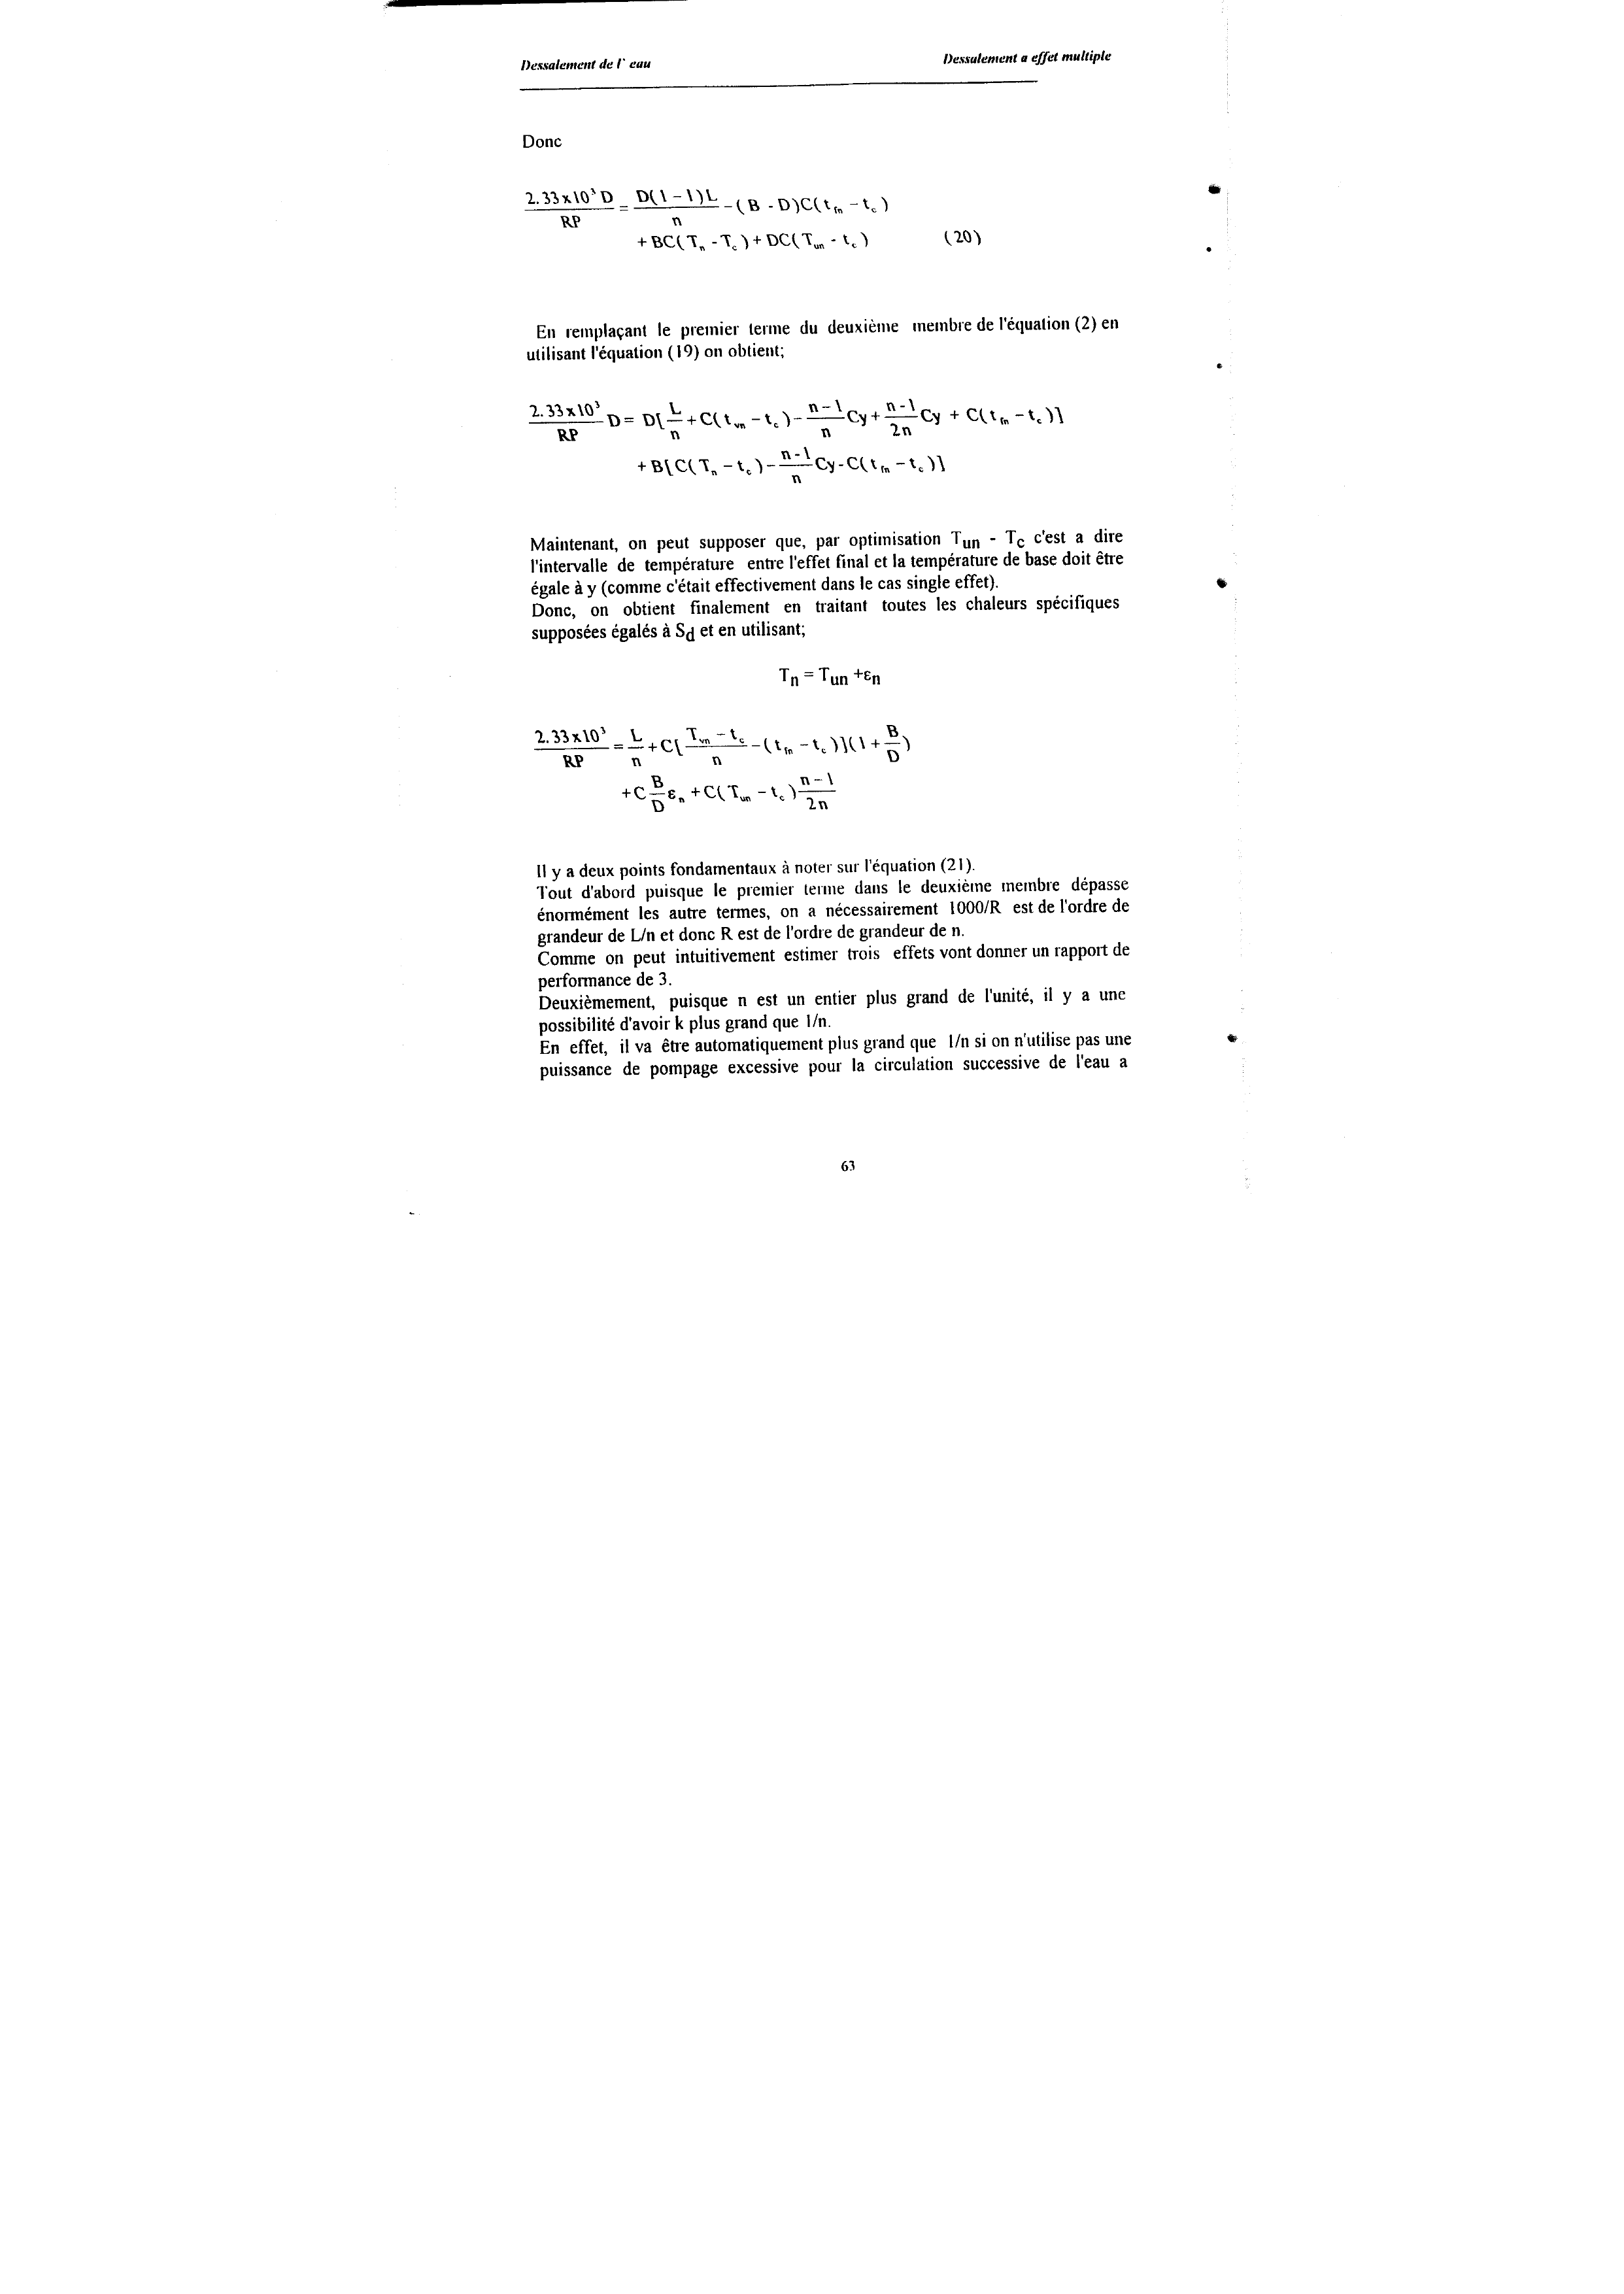 Dessalement de l' eau Dessalement a effet multiple
Donc
2.33x10³ D / RP = D(1-1)L / n - (B - D)C(t_fn - t_c)
+ BC(T_n - T_c) + DC(T_un - t_c) (20)
En remplaçant le premier terme du deuxième membre de l'équation (2) en
utilisant l'équation (19) on obtient;
2.33x10³ / RP D = D{ L/n + C(t_vn - t_c) - n-1/n Cy + n-1/2n Cy + C(t_fn - t_c)}
+ B{C(T_n - t_c) - n-1/n Cy - C(t_fn - t_c)}
Maintenant, on peut supposer que, par optimisation T_un - T_c c'est a dire
l'intervalle de température entre l'effet final et la température de base doit être
égale à y (comme c'était effectivement dans le cas single effet).
Donc, on obtient finalement en traitant toutes les chaleurs spécifiques
supposées égalés à S_d et en utilisant;
T_n = T_un + ε_n
2.33x10³ / RP = L/n + C{ T_vn - t_c / n - (t_fn - t_c)}(1 + B/D)
+ C B/D ε_n + C(T_un - t_c) n-1/2n
Il y a deux points fondamentaux à noter sur l'équation (21).
Tout d'abord puisque le premier terme dans le deuxième membre dépasse
énormément les autre termes, on a nécessairement 1000/R est de l'ordre de
grandeur de L/n et donc R est de l'ordre de grandeur de n.
Comme on peut intuitivement estimer trois effets vont donner un rapport de
performance de 3.
Deuxièmement, puisque n est un entier plus grand de l'unité, il y a une
possibilité d'avoir k plus grand que 1/n.
En effet, il va être automatiquement plus grand que 1/n si on n'utilise pas une
puissance de pompage excessive pour la circulation successive de l'eau a
63